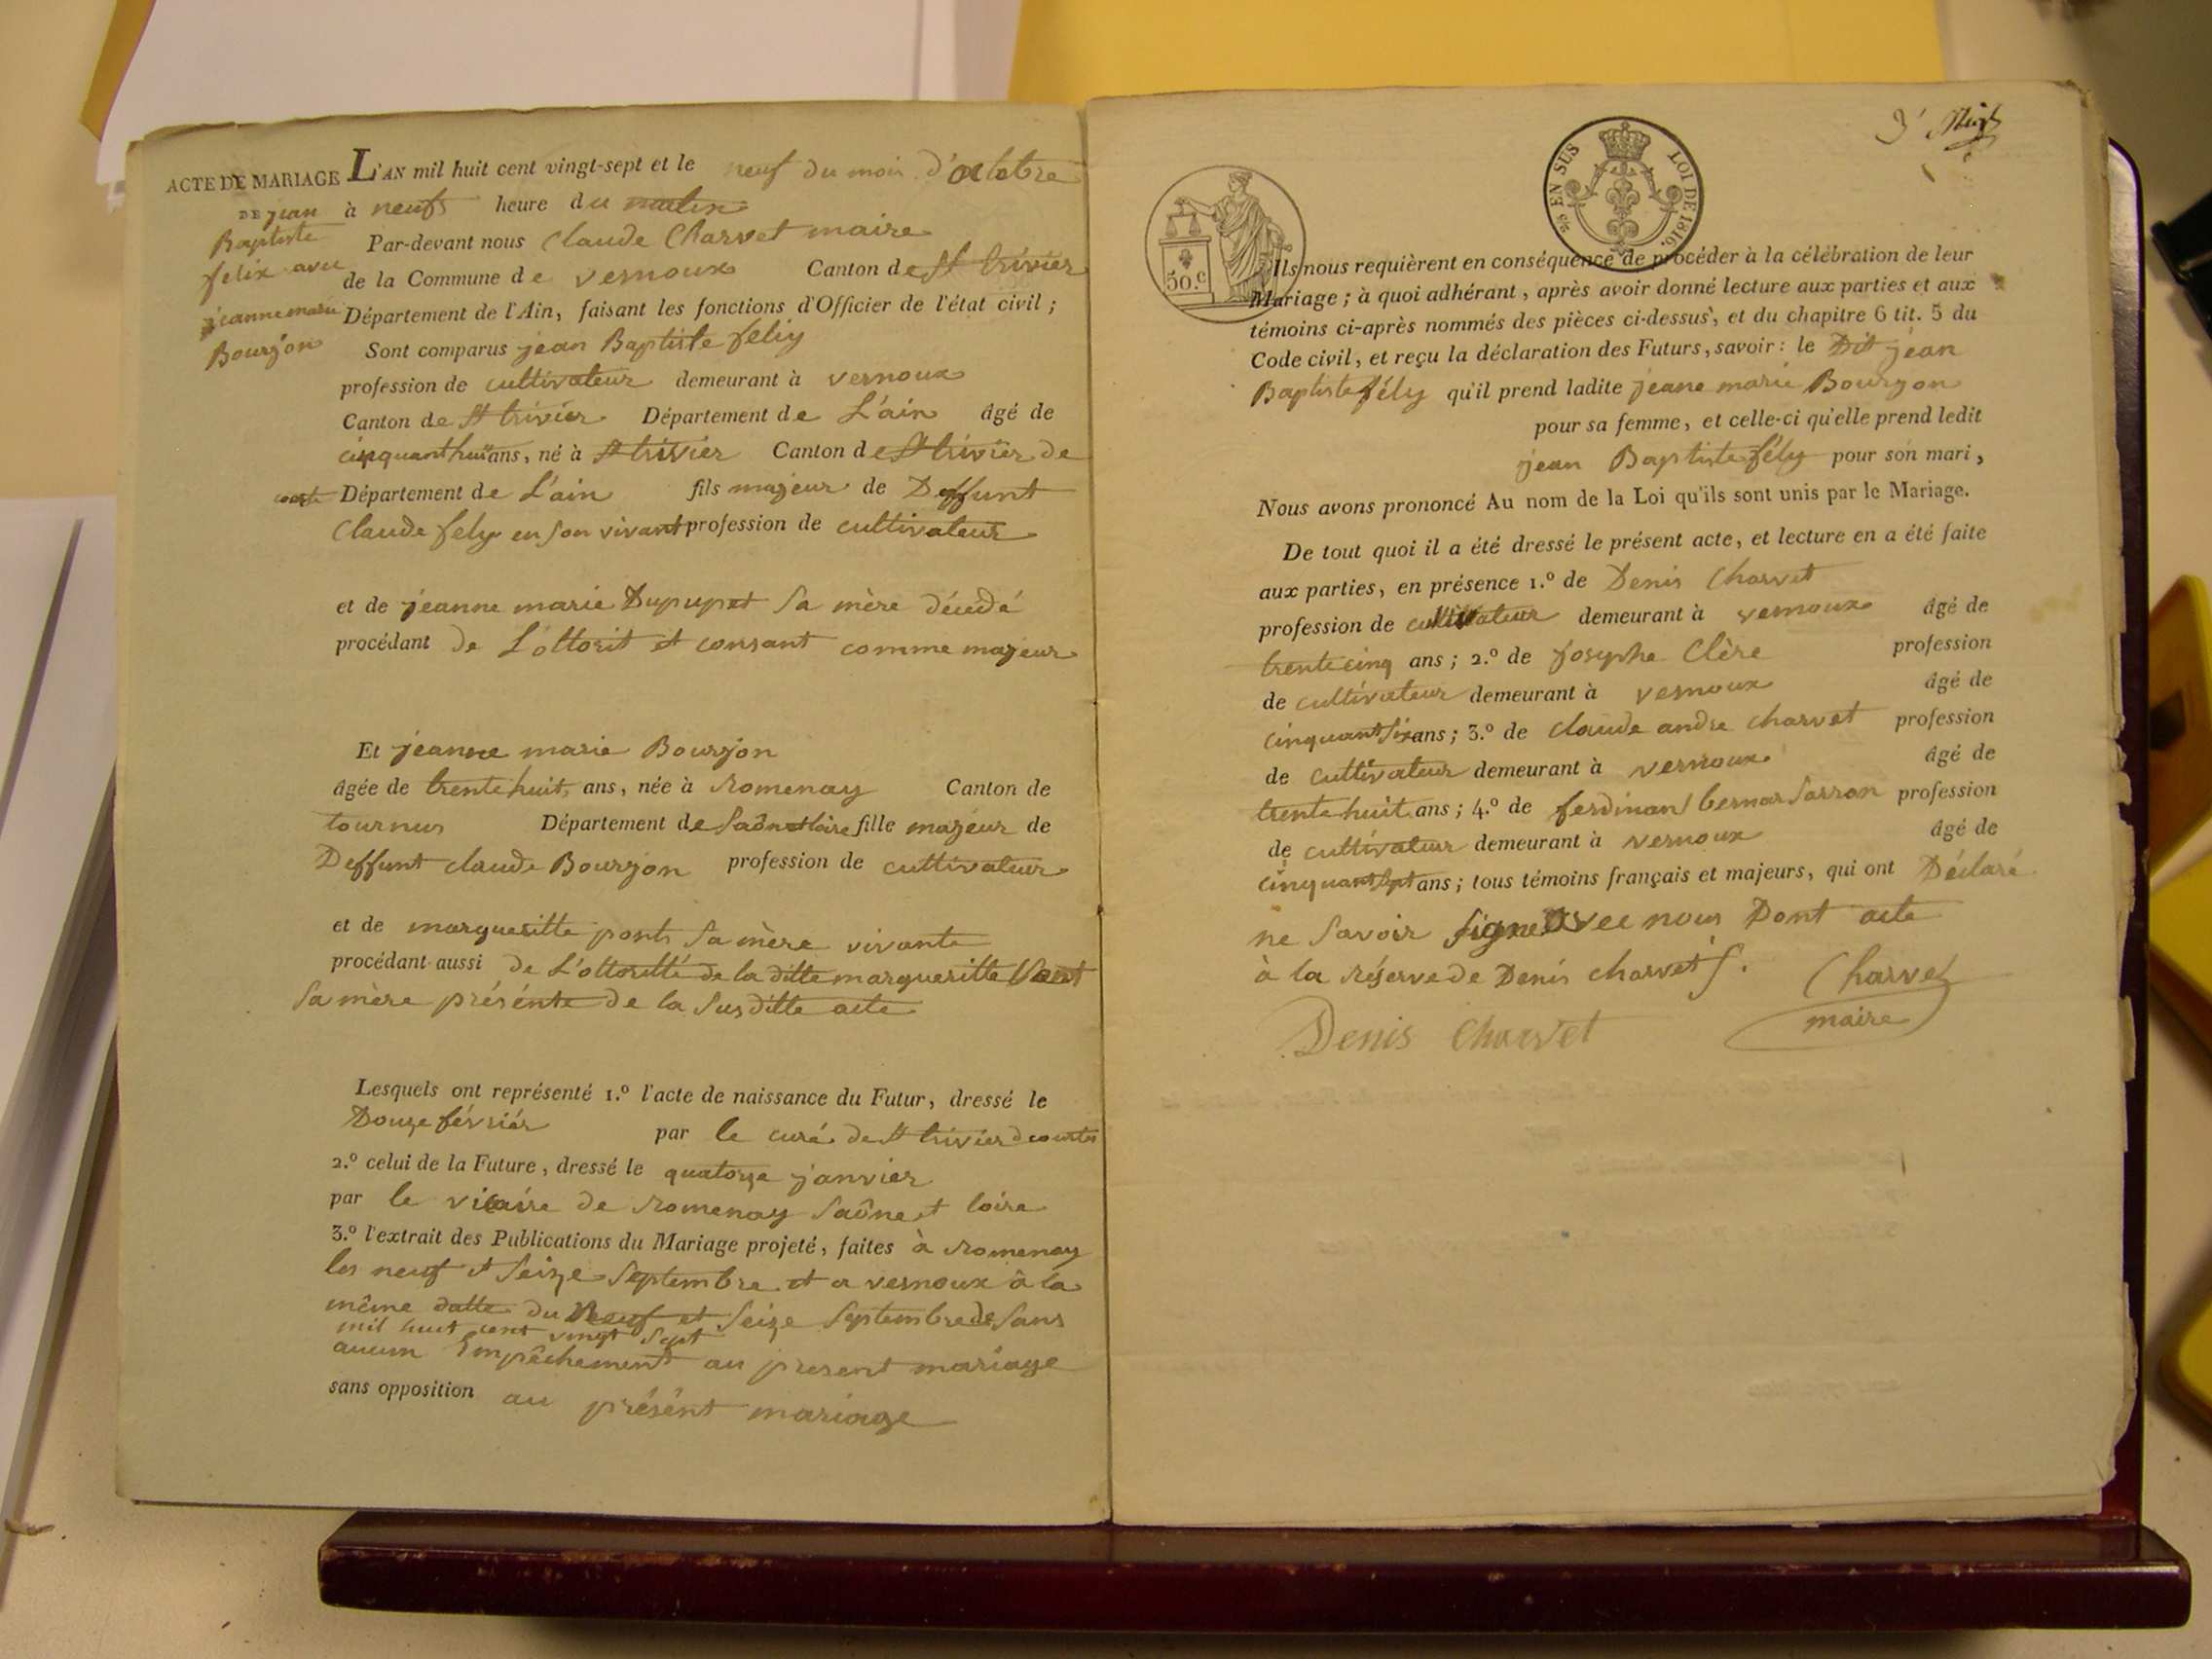 ACTE DE MARIAGE
DE jean
Baptiste
felix avec
jeanne marie
Bourjon
L'AN mil huit cent vingt-sept et le neuf du mois d'octobre
à neuf heure du matin
Par-devant nous Claude Charvet maire
de la Commune de vernoux Canton de St trivier
Département de l'Ain, faisant les fonctions d'Officier de l'état civil ;
Sont comparus jean Baptiste fely
profession de cultivateur demeurant à vernoux
Canton de St trivier Département de L'ain âgé de
cinquanthuit ans, né à St trivier Canton de St trivier de
courte Département de L'ain fils majeur de Deffunt
Claude fely en son vivant profession de cultivateur
et de jeanne marie Dupupet sa mère décédé
procédant de L'ottorit et consant comme majeur
Et jeanne marie Bourjon
âgée de trente huit ans, née à Romenay Canton de
tournus Département de Saône et loire fille majeur de
Deffunt claude Bourjon profession de cultivateur
et de margueritte ponts sa mère vivante
procédant aussi de L'ottoritté de la ditte margueritte
sa mère présénte de la susditte acte
Lesquels ont représenté 1.º l'acte de naissance du Futur, dressé le
Douze févriér par le curé de St trivier de courtes
2.º celui de la Future, dressé le quatorze janvier
par le vicaire de Romenay Saône et loire
3.º l'extrait des Publications du Mariage projeté, faites à Romenay
les neuf et seize septembre et a vernoux à la
même datte du Neuf et seize septembre de sans
mil huit cent vingt sept
aucun Empêchement au present mariage
sans opposition au présént mariage
3'
50.c
5/10 EN SUS LOI DE 1816.
Ils nous requièrent en conséquence de procéder à la célébration de leur
Mariage ; à quoi adhérant, après avoir donné lecture aux parties et aux
témoins ci-après nommés des pièces ci-dessus, et du chapitre 6 tit. 5 du
Code civil, et reçu la déclaration des Futurs, savoir : le Dit jean
Baptiste fély qu'il prend ladite jeane marie Bourjon
pour sa femme, et celle-ci qu'elle prend ledit
jean Baptiste fély pour son mari,
Nous avons prononcé Au nom de la Loi qu'ils sont unis par le Mariage.
De tout quoi il a été dressé le présent acte, et lecture en a été faite
aux parties, en présence 1.º de Denis Charvet
profession de cultivateur demeurant à vernoux âgé de
trente cinq ans ; 2.º de josephe Clère profession
de cultivateur demeurant à vernoux âgé de
cinquant six ans ; 3.º de claude andre charvet profession
de cultivateur demeurant à vernoux âgé de
trente huit ans ; 4.º de ferdinan bernar Sarron profession
de cultivateur demeurant à vernoux âgé de
cinquant sept ans ; tous témoins français et majeurs, qui ont Déclaré
ne savoir signe avec nous Dont acte
à la réserve de Denis charvet S.
Charvet
maire
Denis Charvet